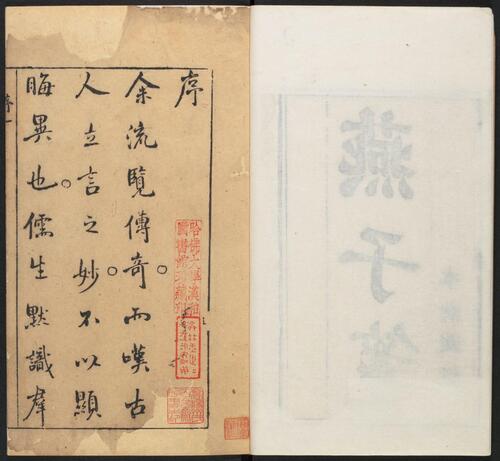 序
余流覽傳奇而嘆古
人立言之妙不以顯
晦異也儒生默識羣
序一
燕子箋